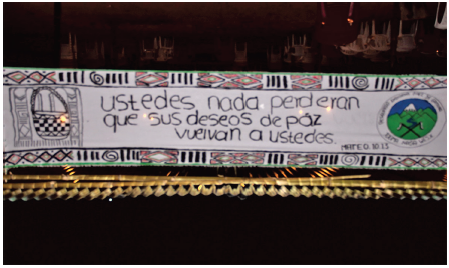 ustedes nada perderan
que sus deseos de páz
vuelvan a ustedes.
MATEO. 10.13